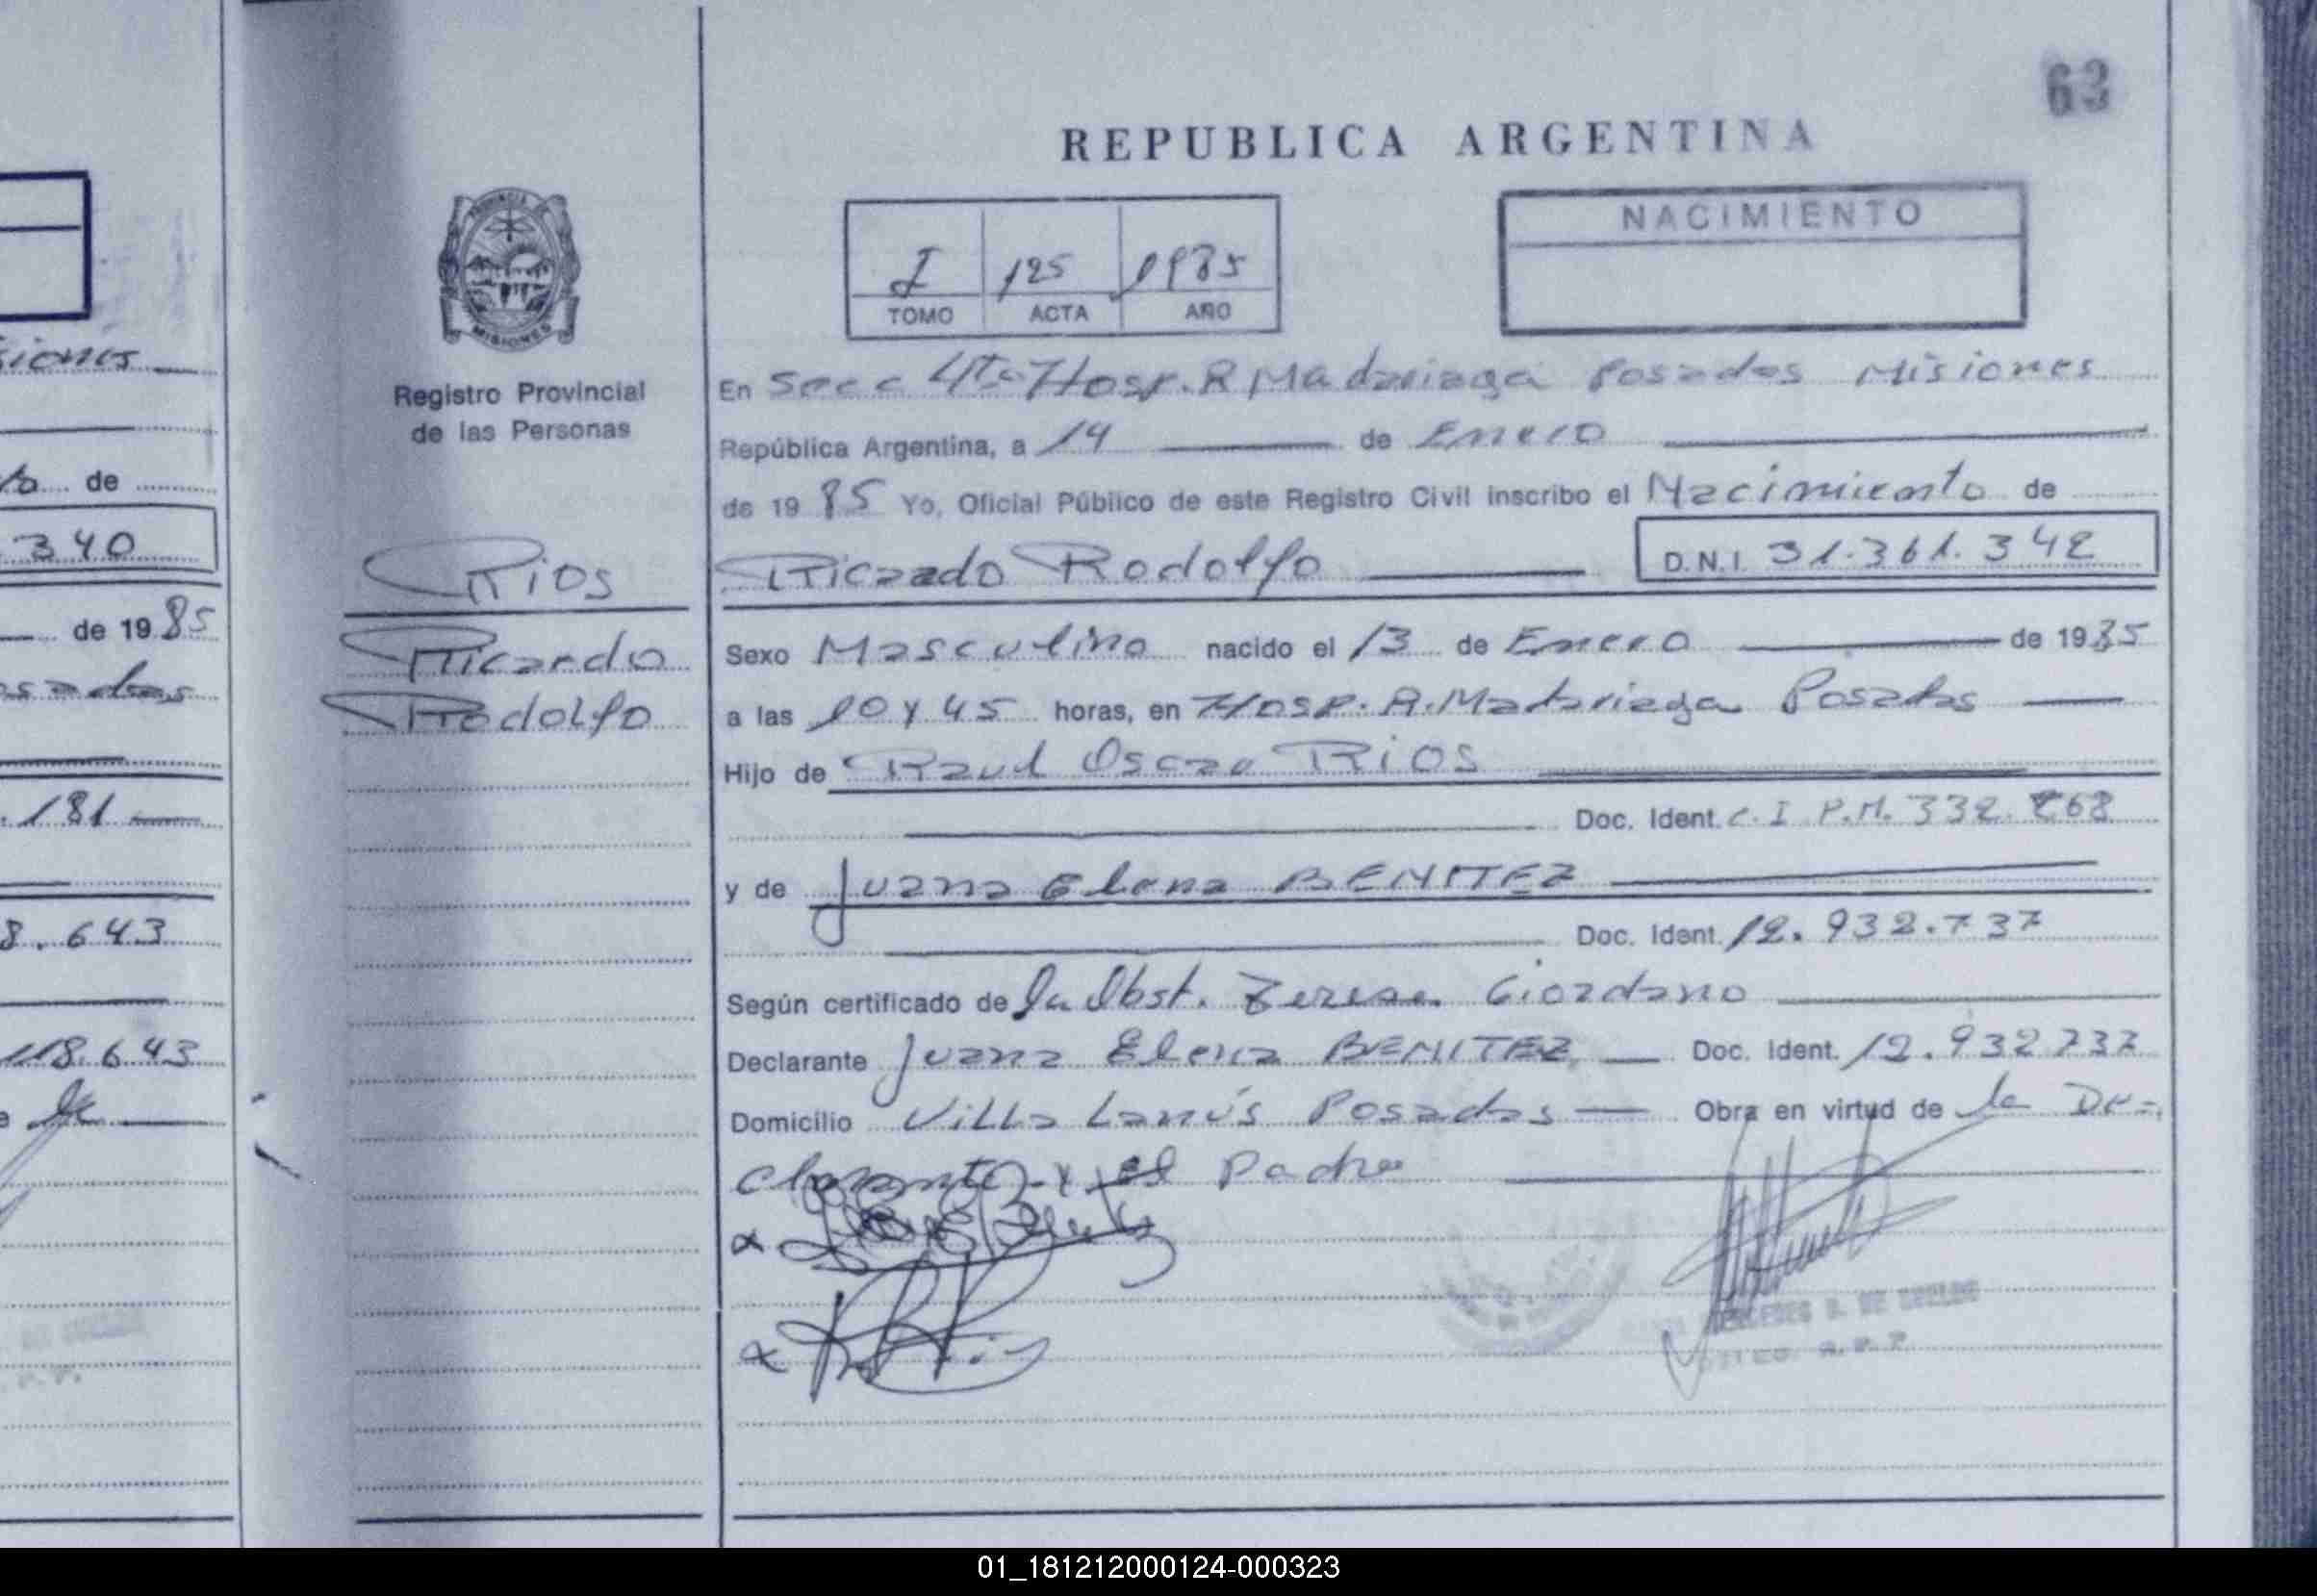 63
REPUBLICA ARGENTINA
NACIMIENTO
I 125 1985
TOMO ACTA AÑO
PROVINCIA DE
MISIONES
Registro Provincial
de las Personas
Rios
Ricardo
Rodolfo
En Secc 4ta Hosp. R Madariaga Posadas Misiones
República Argentina, a 14 de Enero
de 1985 Yo, Oficial Público de este Registro Civil inscribo el Nacimiento de
Ricardo Rodolfo D.N.I. 31.361.342
Sexo Masculino nacido el 13 de Enero de 1985
a las 10 y 45 horas, en Hosp. R. Madariaga Posadas
Hijo de Raul Oscar RIOS
Doc. Ident. C. I P.M. 332.
y de Juana Elena BENITEZ
Doc. Ident. 12.932.737
Según certificado de la Obst. Teresa Giordano
Declarante Juana Elena BENITEZ Doc. Ident. 12.932 737
Domicilio Villa Lanús Posadas Obra en virtud de la De-
clarante y el Padre
iones
to de
340
de 1985
osadas
.181
8.643
118.643
01_181212000124-000323